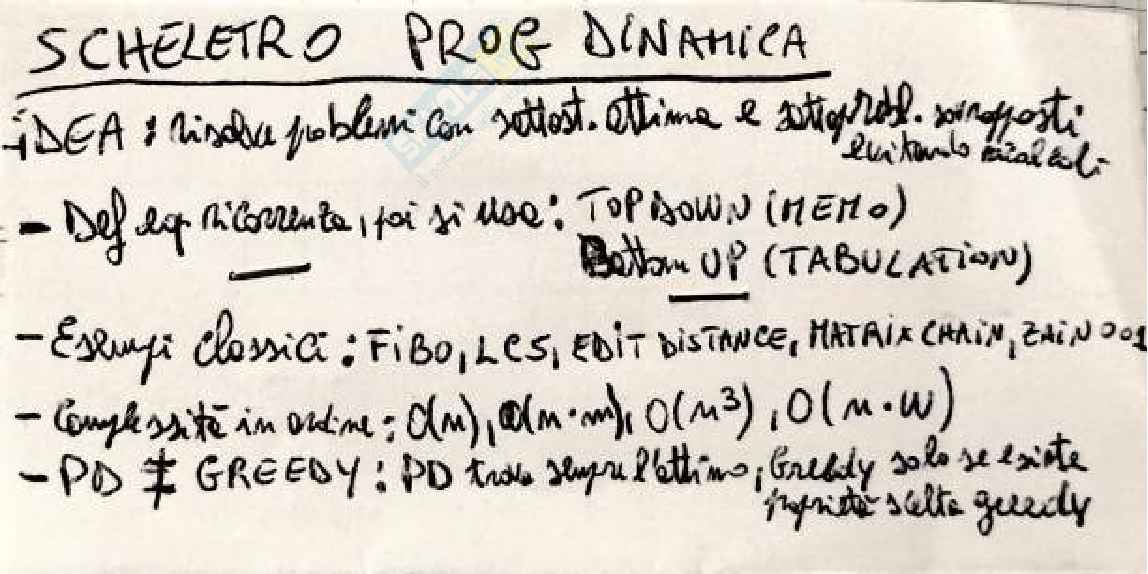 SCHELETRO PROG DINAMICA
- iDEA : risolve problemi con sottost. ottima e sottoprobl. sovrapposti
evitando ricalcoli
- Def eq ricorrenza, poi si usa: TOP DOWN (MEMO)
Bottom UP (TABULATION)
- Esempi classici : FiBO, LCS, EDIT DISTANCE, MATRIX CHAIN, ZAINO 01
- Complessità in ordine : O(n), O(n·m), O(n³), O(n·W)
- PD ≠ GREEDY : PD trova sempre l'ottimo, Greedy solo se esiste
proprietà scelta greedy